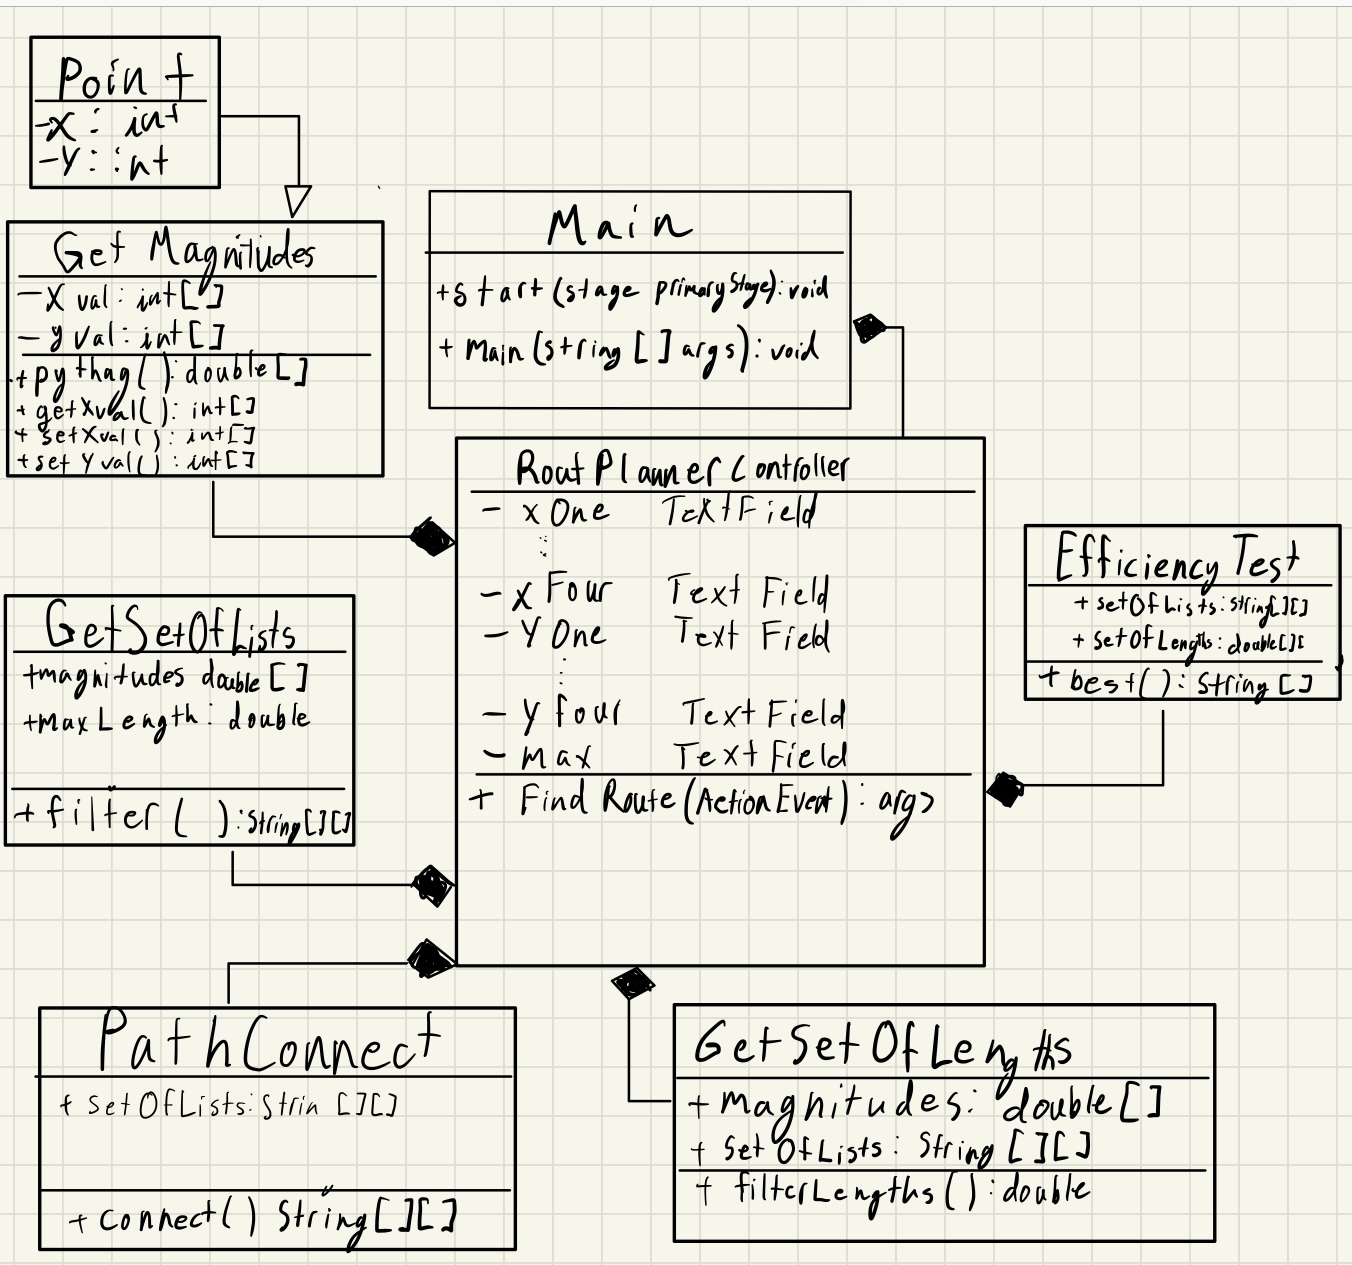 Point
-X: int
-Y: int
Get Magnitudes
-X val: int[]
- y val: int[]
+pythag(): double[]
+ getXval(): int[]
+ setXval(): int[]
+set Yval(): int[]
Main
+start(stage primaryStage): void
+ Main(string [] args): void
RoutPlannerController
- xOne TextField
- x Four Text Field
- Y One Text Field
- y four Text Field
- max Text Field
+ Find Route(ActionEvent): args
Efficiency Test
+ setOfLists: String[][]
+ SetOfLengths: double[][
+ best(): String[]
GetSetOfLists
+magnitudes double[]
+maxLength: double
+filter( ): String[][]
PathConnect
+ setOfLists: Strin [][]
+ connect() String[][]
GetSetOfLengths
+ magnitudes: double[]
+ SetOfLists: String [][]
+ filterLengths(): double